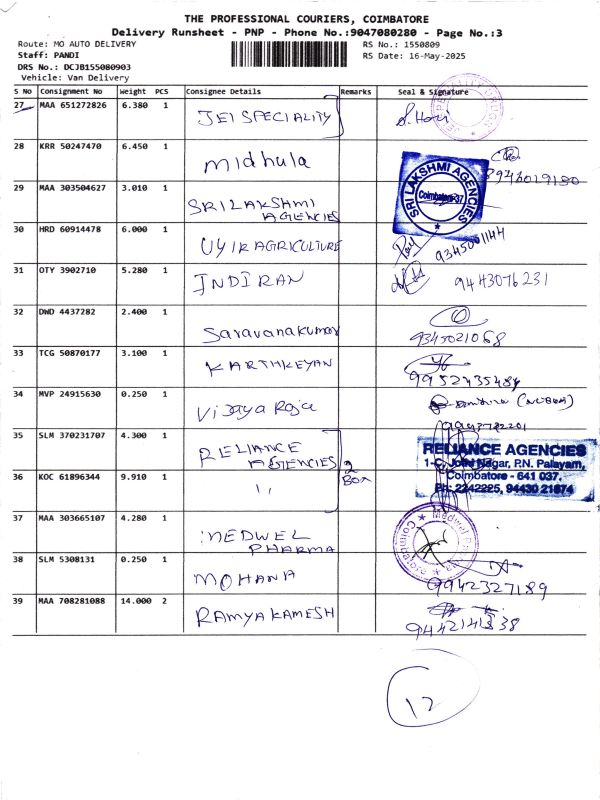 THE PROFESSIONAL COURIERS, COIMBATORE
Delivery Runsheet - PNP - Phone No.:9047080280 - Page No.:3
Route: MO AUTO DELIVERY RS No.: 1550809
Staff: PANDI RS Date: 16-May-2025
DRS No.: DCJB155080903
Vehicle: Van Delivery
S No Consignment No Weight PCS Consignee Details Remarks Seal & Signature
27 MAA 651272826 6.380 1 JEI SPECIALITY S. Hari
28 KRR 50247470 6.450 1 Midhula 8943019180
29 MAA 303504627 3.010 1 SRI LAKSHMI AGENCIES SRI LAKSHMI AGENCIES Coimbatore-37
30 HRD 60914478 6.000 1 UYIR AGRICULTURE 9345001144
31 OTY 3902710 5.280 1 INDIRAN 9443076231
32 DWD 4437282 2.400 1 Saravanakumar 9345021068
33 TCG 50870177 3.100 1 KARTHKEYAN 9952435484
34 MVP 24915630 0.250 1 Vijaya Roja
35 SLM 370231707 4.300 1 RELIANCE AGENCIES 2 Box
RELIANCE AGENCIES
1-C, Jothi Nagar, P.N. Palayam,
Coimbatore - 641 037.
Ph: 2242225, 94430 21674
36 KOC 61896344 9.910 1 ,,
37 MAA 303665107 4.280 1 MEDWEL PHARMA Medwel Pharma Coimbatore
38 SLM 5308131 0.250 1 MOHANA 9942327189
39 MAA 708281088 14.000 2 RAMYA KAMESH
12